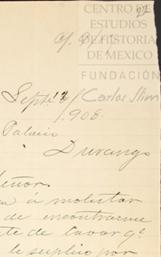 CENTRO DE
ESTUDIOS
DE HISTORIA
DE MEXICO
FUNDACIÓN
Carlos Slim
Sept. 12/
1908
Palacio
Durango
Señor
á molestar
de encontrarme
te de favor qe
le suplico por